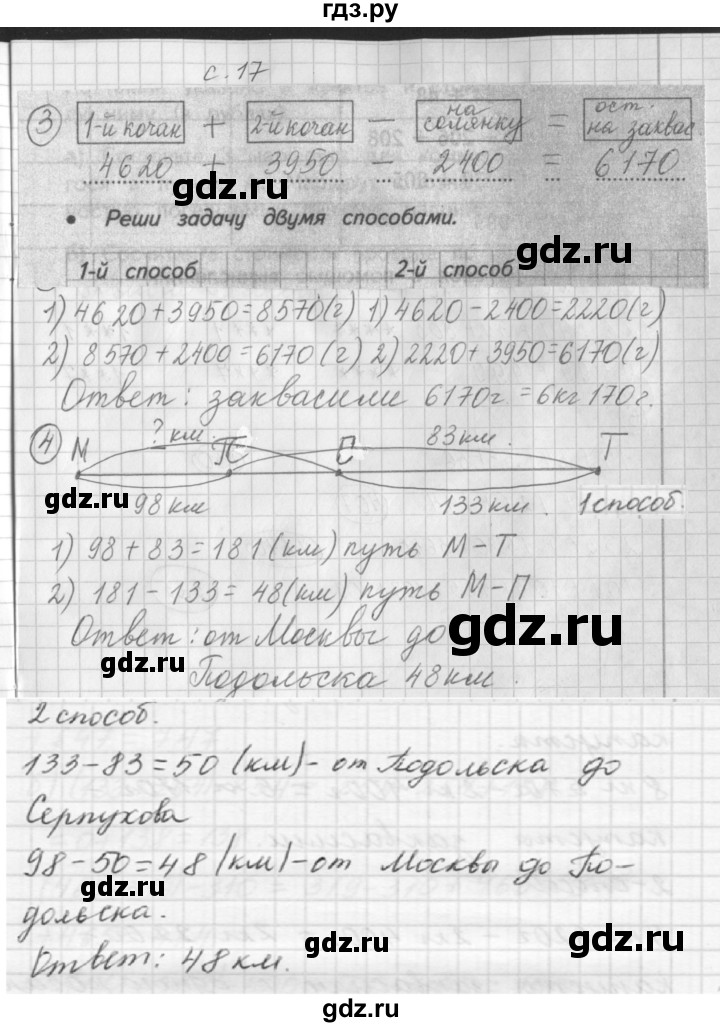 гдз.ру
с. 17
3 1-й кочан + 2-й кочан − на солянку = ост. на заквас.
4620 + 3950 − 2400 = 6170
• Реши задачу двумя способами.
1-й способ 2-й способ
gdz.ru
1) 4620+3950=8570(г) 1) 4620−2400=2220(г)
2) 8570+2400=6170(г) 2) 2220+3950=6170(г)
Ответ: заквасили 6170г = 6кг 170г.
4 М ? км. П С 83км. Т
gdz.ru
98км 133км. 1 способ.
1) 98+83=181(км) путь М-Т
2) 181−133=48(км) путь М-П
gdz.ru
Ответ: от Москвы до
gdz.ru
Подольска 48км.
2 способ.
133−83=50 (км)- от Подольска до
Серпухова
98−50=48 (км)-от Москвы до По-
дольска.
gdz.ru
gdz.ru
Ответ: 48км.
gdz.ru